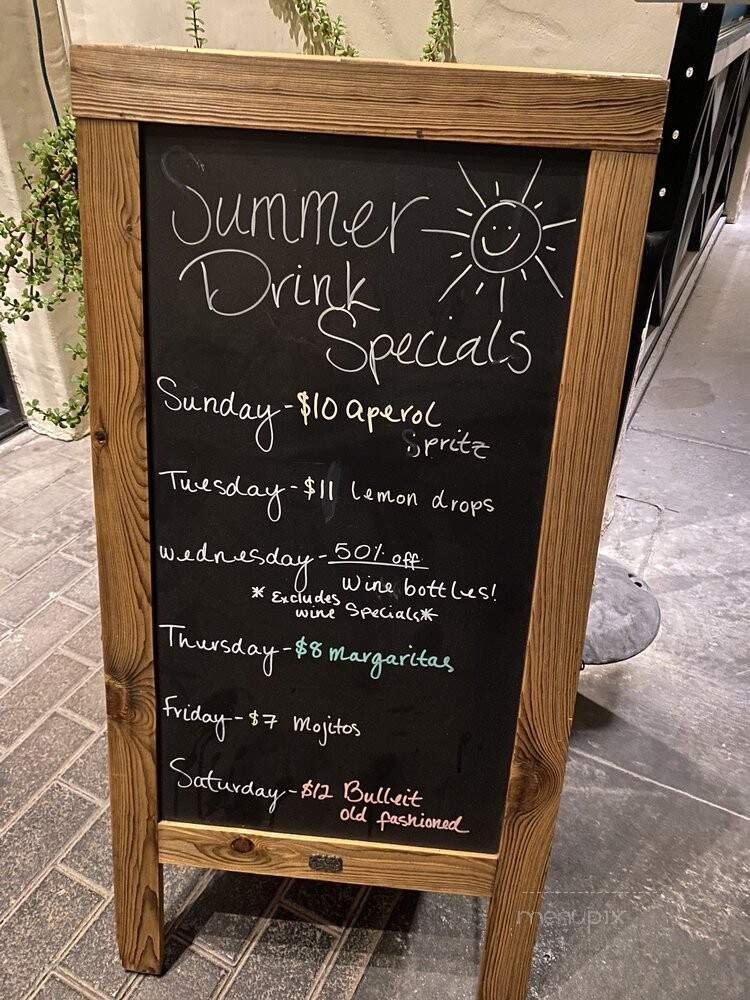 Summer
Drink
Specials
Sunday - $10 aperol
Spritz
Tuesday - $11 lemon drops
wednesday - 50% off
wine bottles!
* Excludes
wine Specials *
Thursday - $8 margaritas
Friday - $7 Mojitos
Saturday - $12 Bulleit
old fashioned
menupix